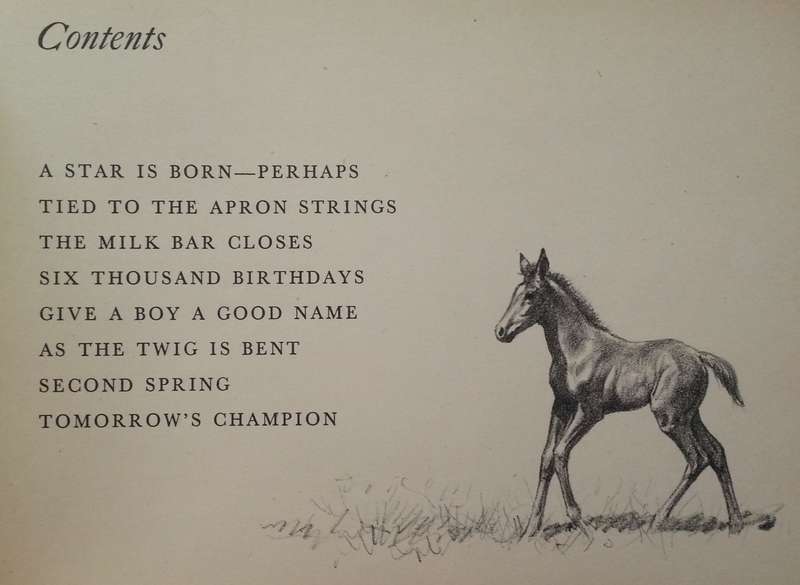 Contents
A STAR IS BORN—PERHAPS
TIED TO THE APRON STRINGS
THE MILK BAR CLOSES
SIX THOUSAND BIRTHDAYS
GIVE A BOY A GOOD NAME
AS THE TWIG IS BENT
SECOND SPRING
TOMORROW'S CHAMPION